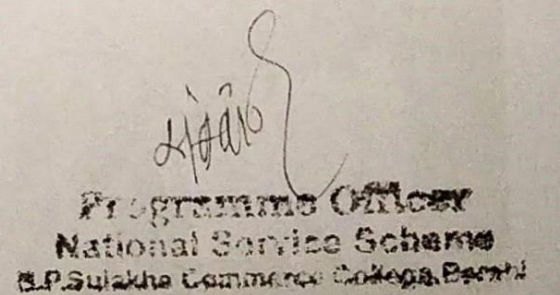 Programme Officer
National Service Scheme
B.P.Sulakhe Commerce College,Barshi